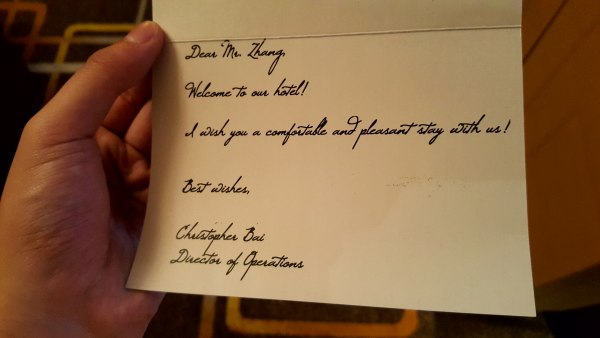 Dear Mr. Zhang,
Welcome to our hotel!
I wish you a comfortable and pleasant stay with us!
Best wishes,
Christopher Bai
Director of Operations